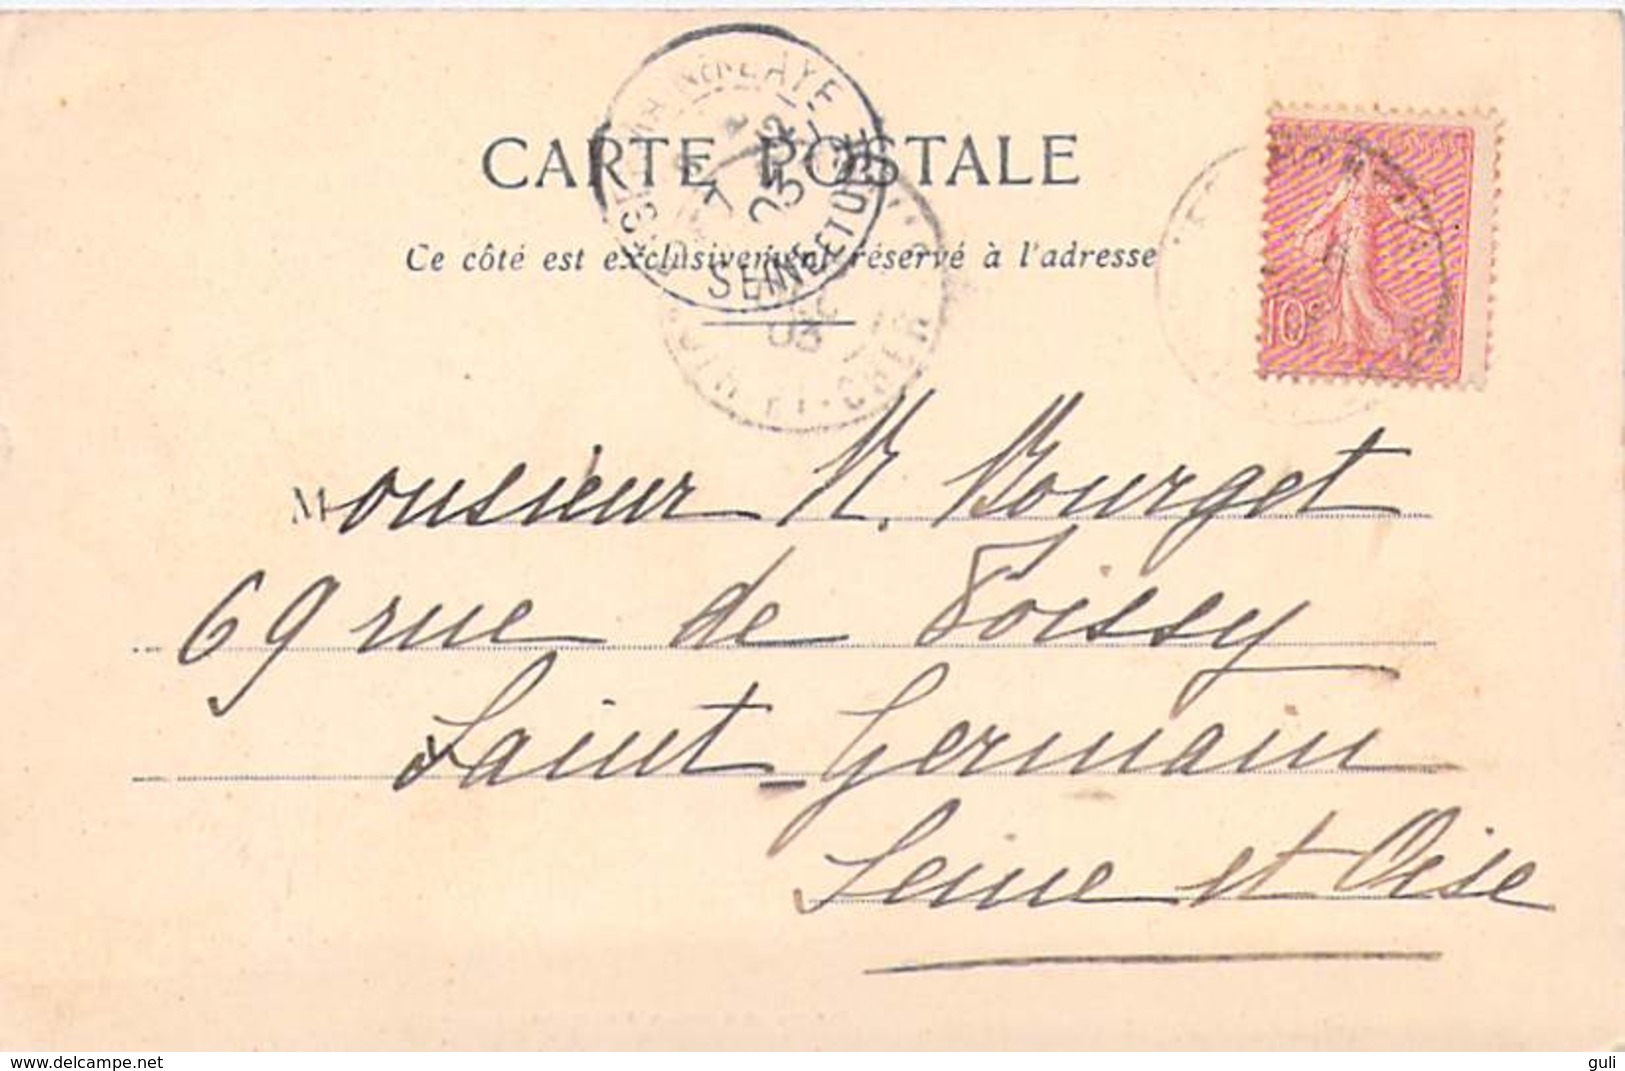 CARTE POSTALE
Ce côté est exclusivement réservé à l'adresse
ST GERMAIN EN LAYE
7 12 03
SEINE ET OISE
03
LOIR-ET-CHER
10c
Monsieur M. Bourget
69 rue de Poissy
Saint-Germain
Seine et Oise
www.delcampe.net
guli